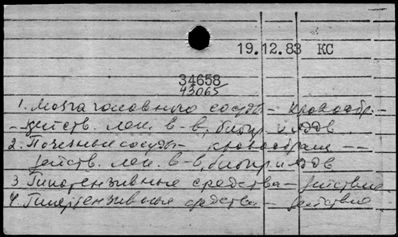 19.12.83 КС
34658
43065
1. Мозга головного сосуды - кровообр. -
- действ. лек. в-в, биопр. и ядов
2. Почечные сосуды - кровообращ. --
действ. лек. в-в, биопр. и ядов
3 Гипотензивные средства - действие
4. Гипертензивные средства - действие